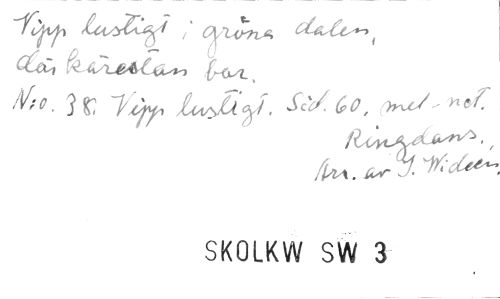 Vipp lustigt i gröna dalen,
där kärestan bor.
N:o. 38. Vipp lustigt. Sid. 60. met-not.
Ringdans.
Arr. av I. Widéen.
SKOLKW SW 3